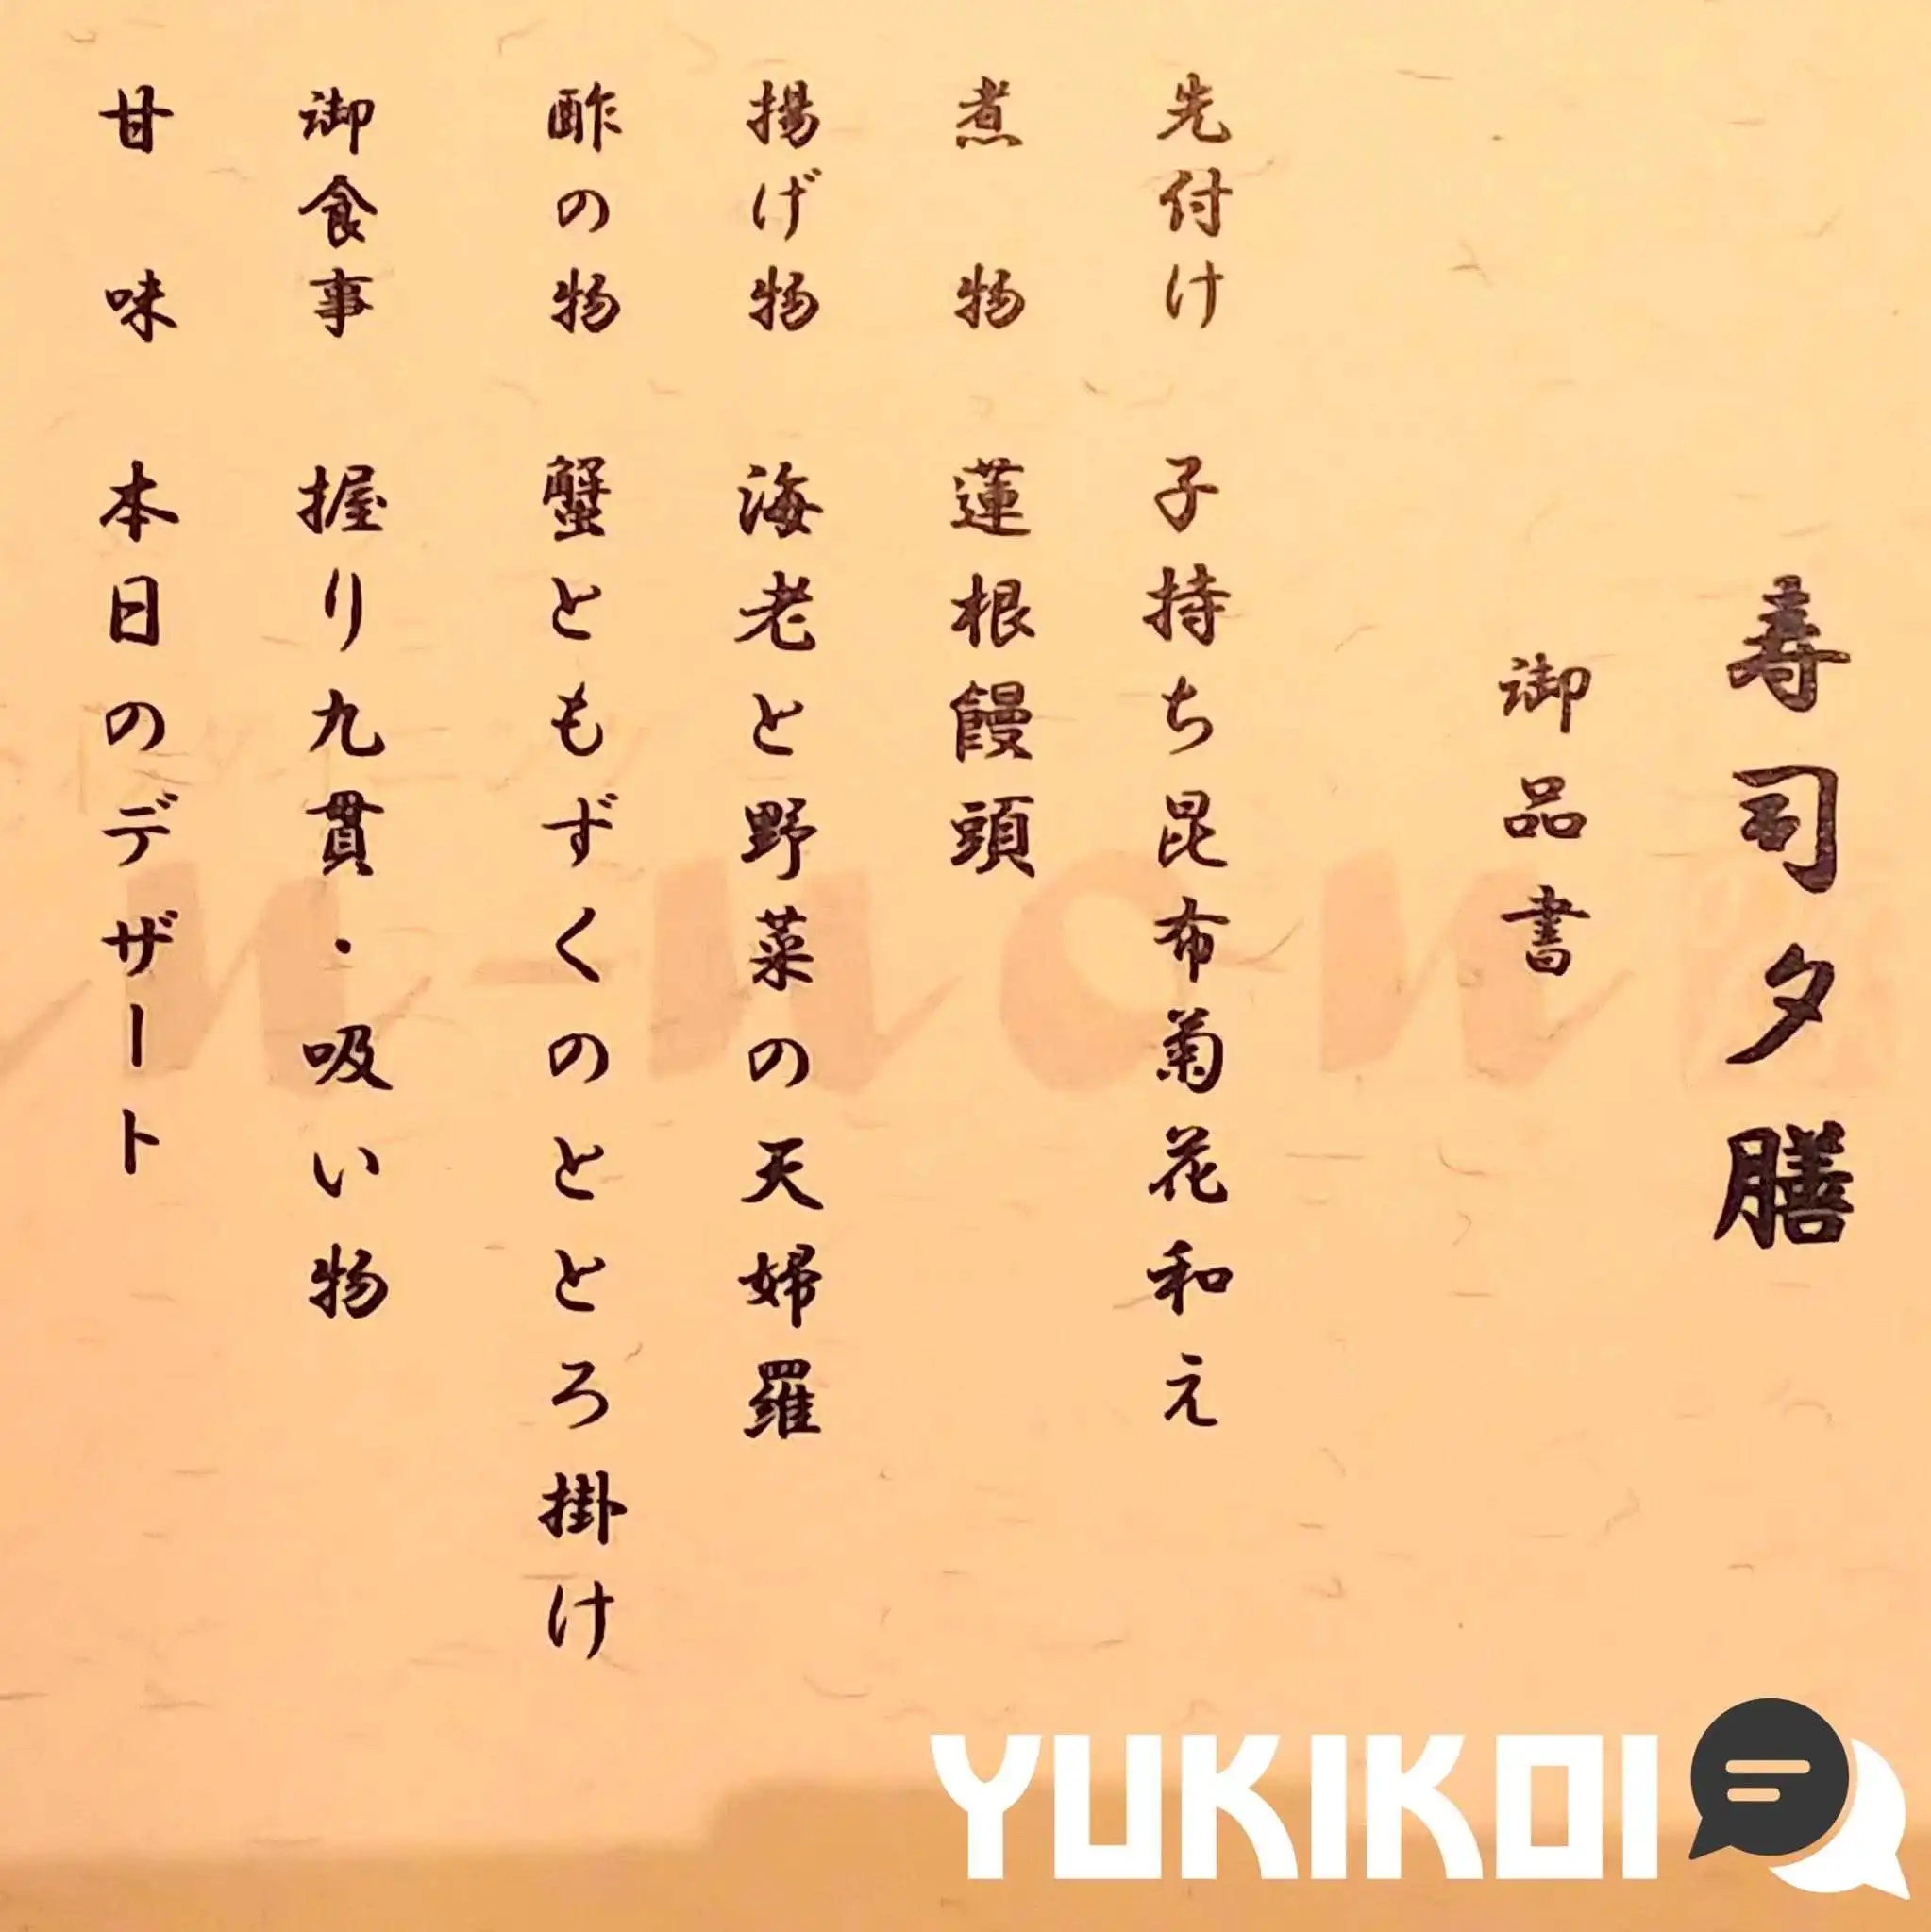 寿司夕膳
御品書
先付け 子持ち昆布菊花和え
煮物 蓮根饅頭
揚げ物 海老と野菜の天婦羅
酢の物 蟹ともずくのととろ掛け
御食事 握り九貫・吸い物
甘味 本日のデザート
YUKIKOI